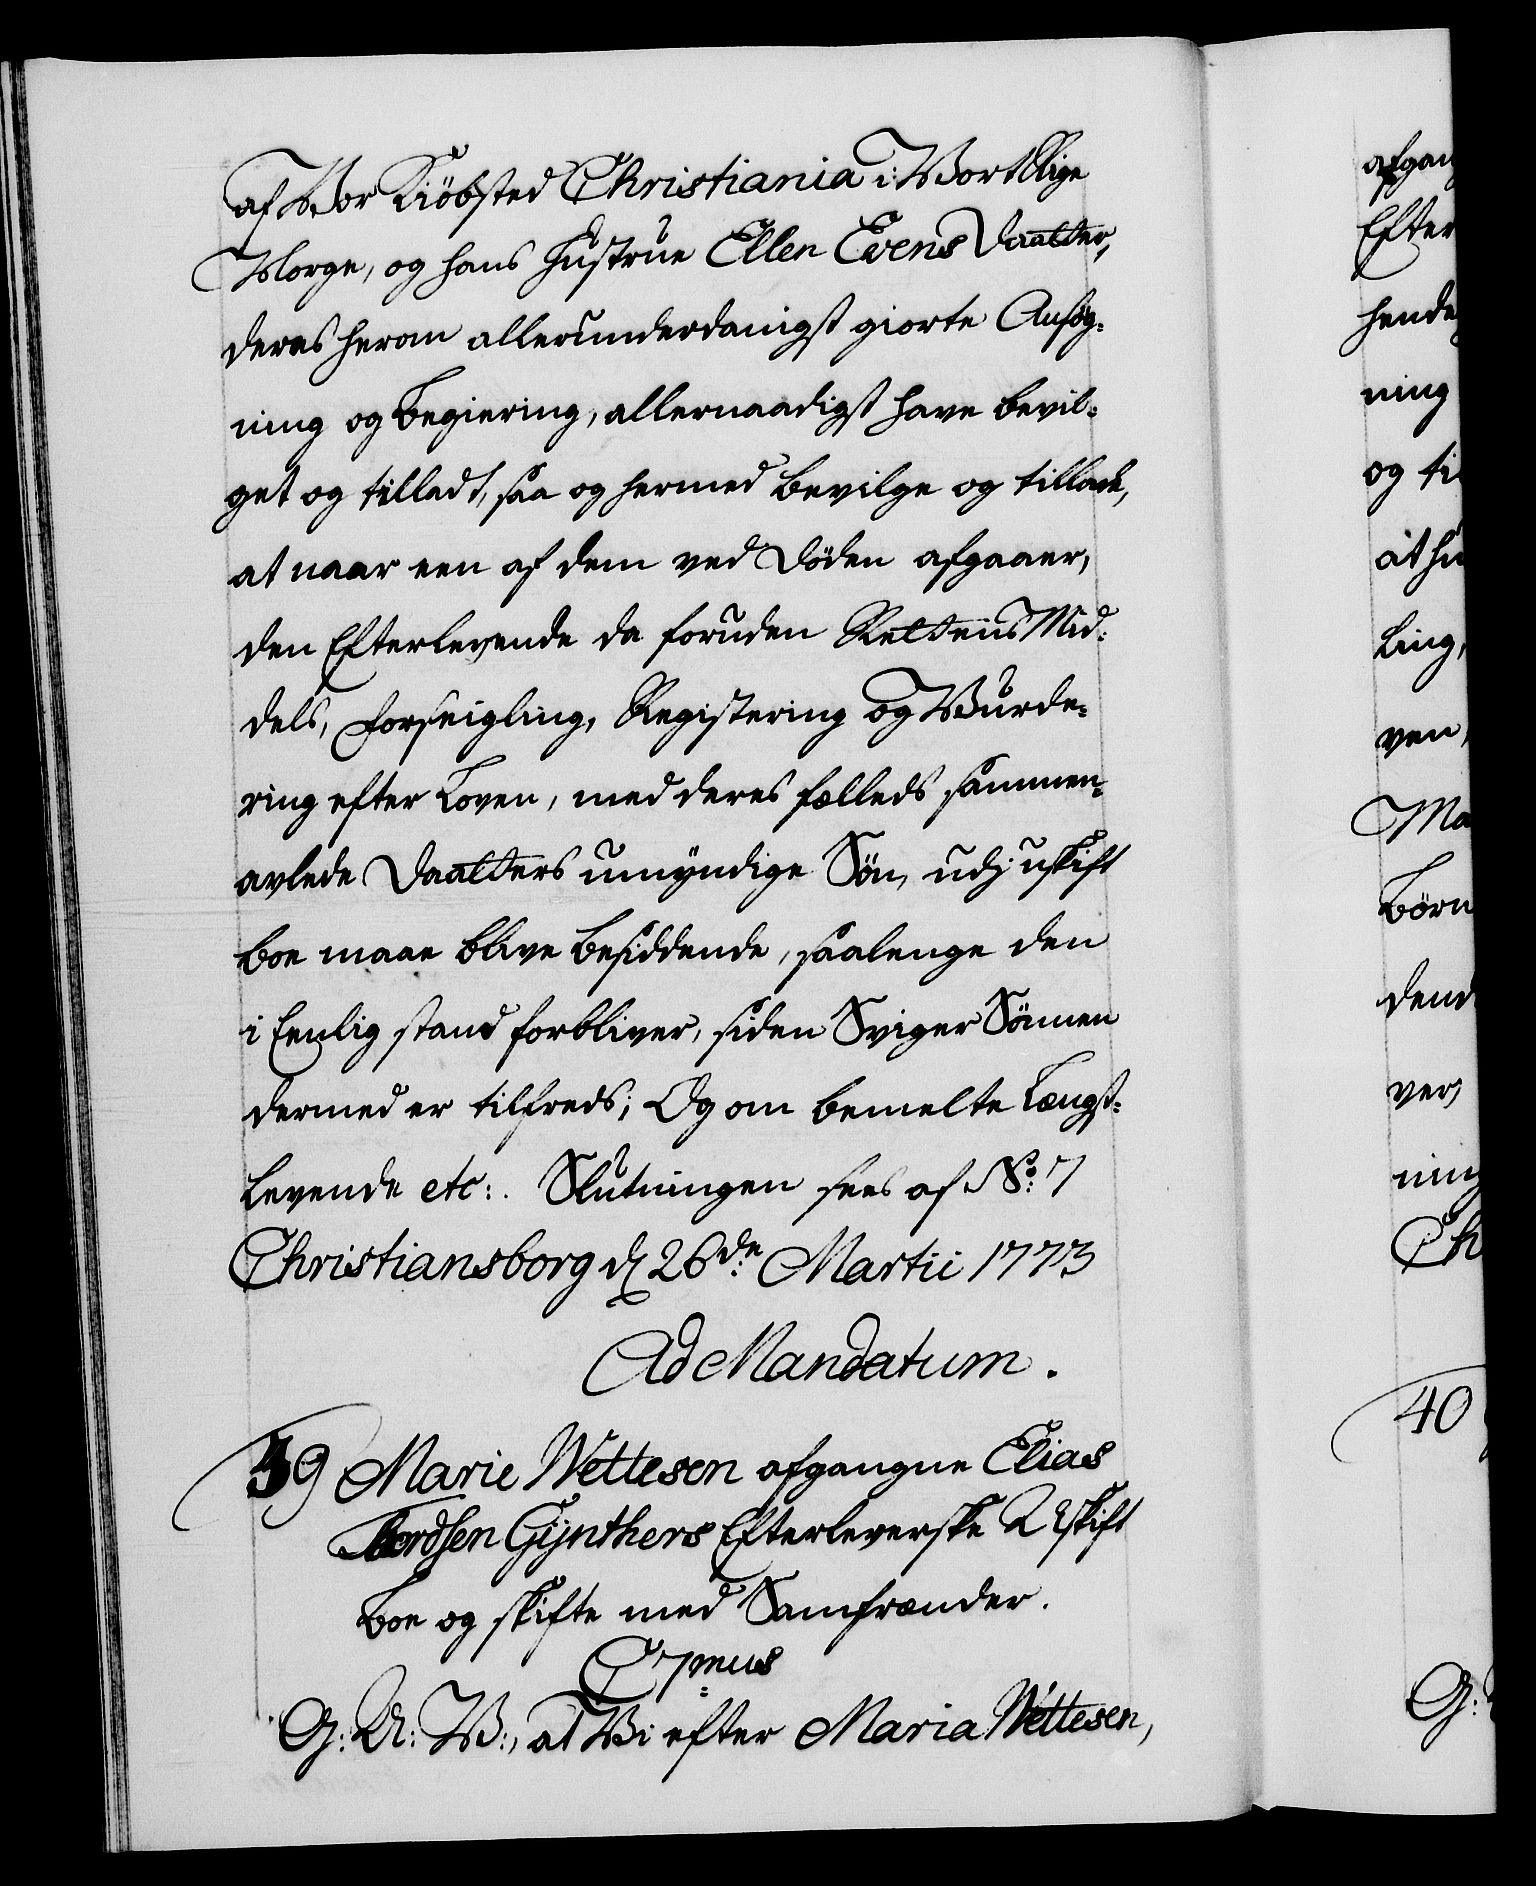 af Vor Kiöbsted Christiania i Vort Rige
Norge, og hans Hustrue Ellen Evens Daatter,
deres herom allerunderdanigst giorte Ansøg-
ning og Begiering, allernaadigst have bevil-
get og tilladt, saa og hermed bevilge og tillade,
at naar een af dem ved Döden afgaaer,
den Efterlevende da foruden Rettens Mid-
dels, Forseigling, Registering og Vurde-
ring efter Loven, med deres fælleds sammen-
avlede Daatters umyndige Sön, udj uskift
Boe maae blive besiddende, saalenge den
i Eenlig stand forbliver, siden Sviger Sönnen
dermed er tilfreds; Og om bemelte Længst-
levende etc:. Slutningen sees af No: 7
Christiansborg d 26de Martii 1773
Ad Mandatum.
39 Marie Wettesen afgangne Elias
Gÿnthers Efterleverske Uskift
Boe og skifte med Samfrænder.
C 7mus
G: A: V:, at Vi efter Maria Wettesen,
afgan
Efter
hende
ning
og ti
at hu
ling,
ven,
Ma
Börn
dend
ver,
ning
Ch
40
G: